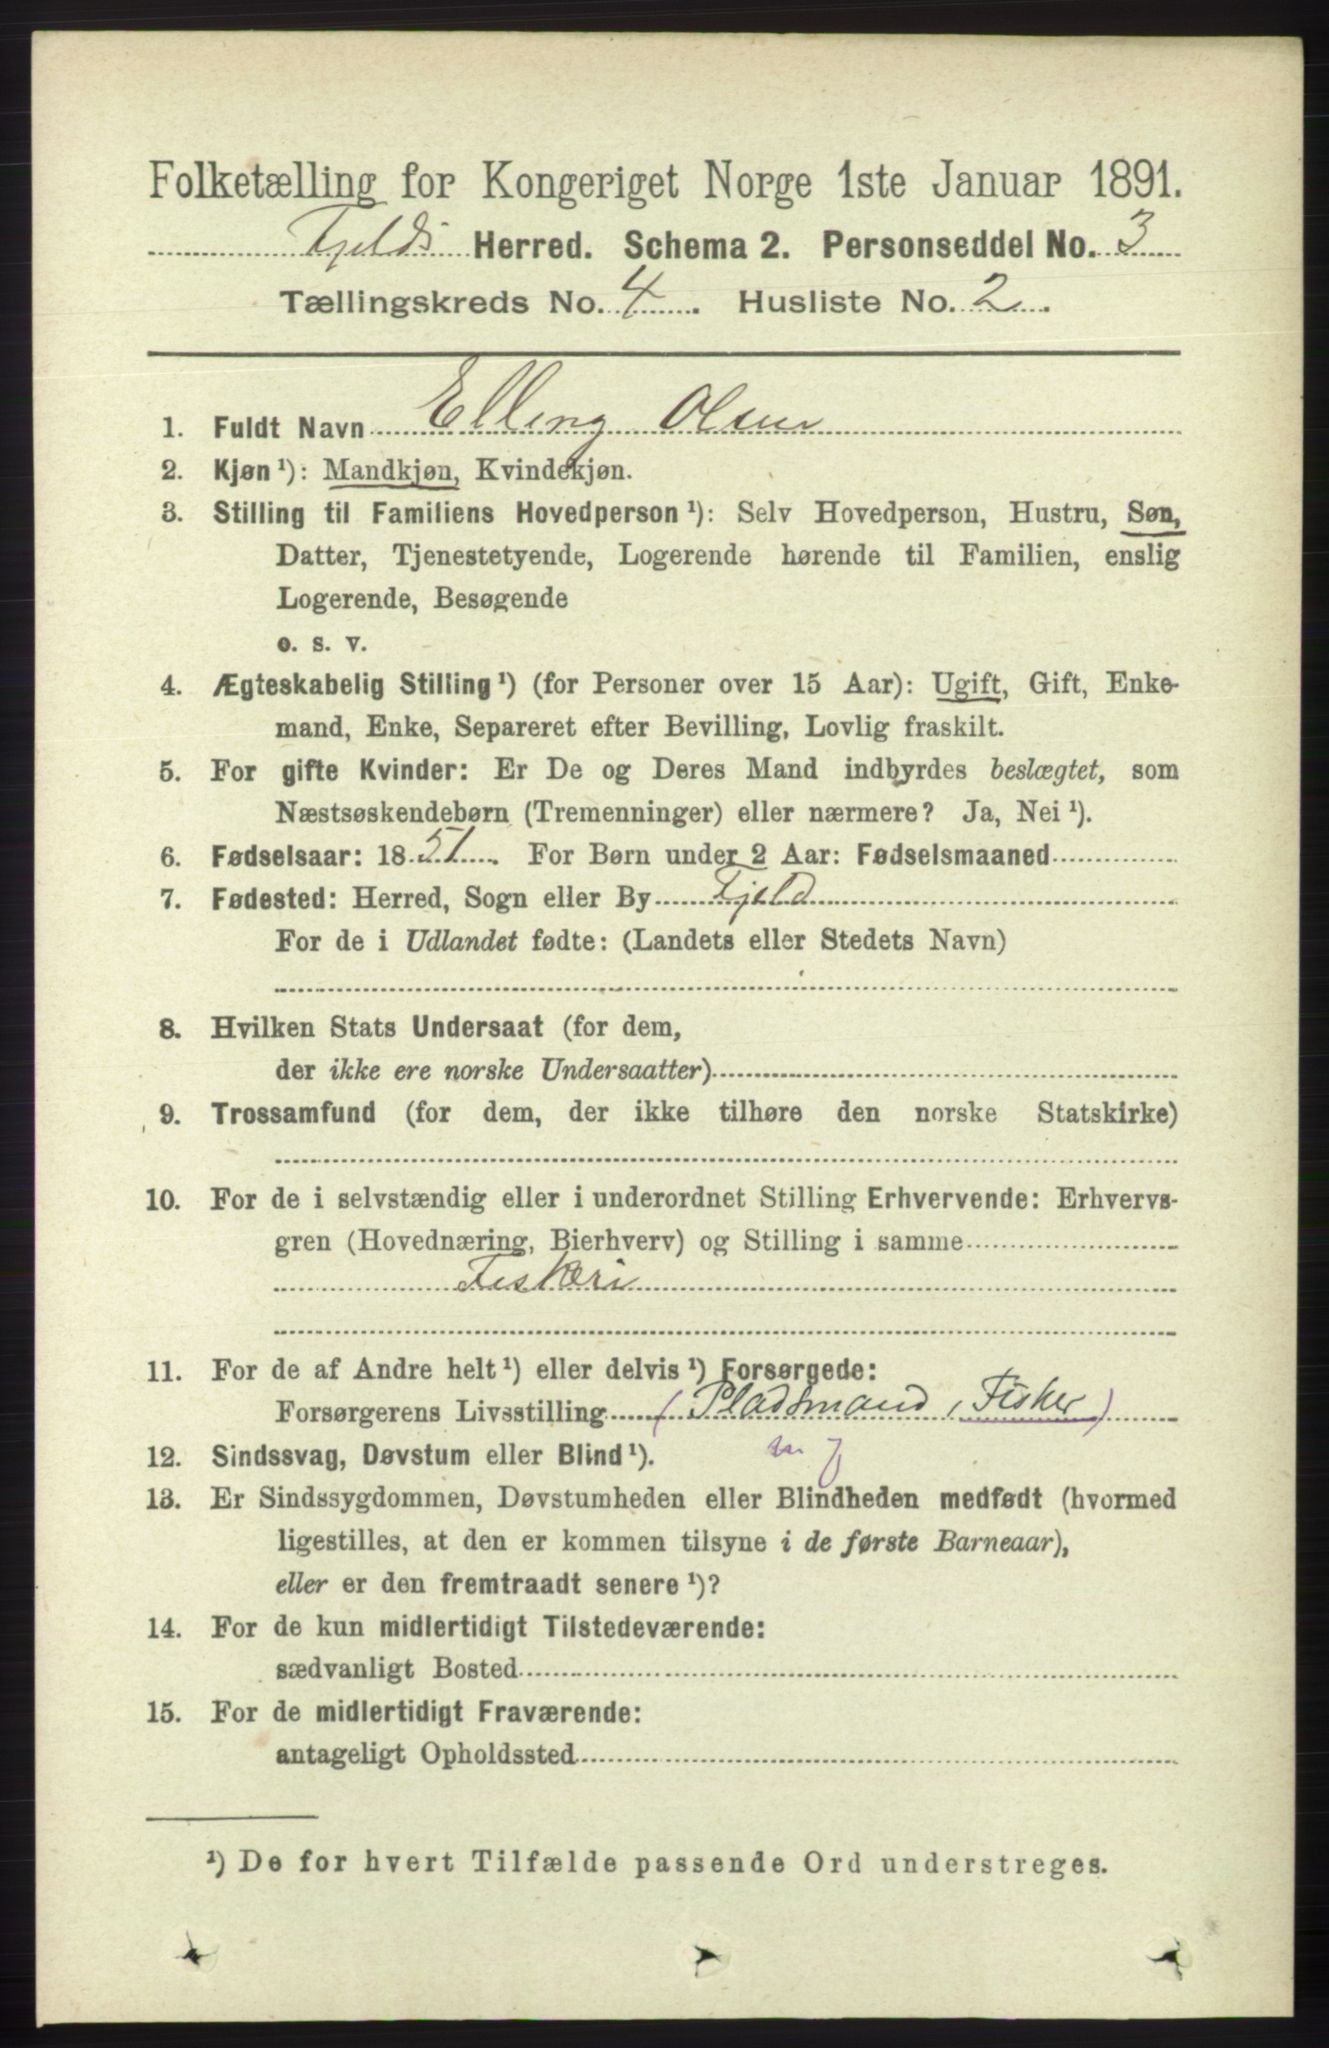 Folketælling for Kongeriget Norge 1ste Januar 1891.
Fjelds Herred. Schema 2. Personseddel No. 3
Tællingskreds No. 4. Husliste No. 2.
1. Fuldt Navn Elling Olsen
2. Kjøn ¹): Mandkjøn, Kvindekjøn.
3. Stilling til Familiens Hovedperson ¹): Selv Hovedperson, Hustru, Søn,
Datter, Tjenestetyende, Logerende hørende til Familien, enslig
Logerende, Besøgende
o. s. v.
4. Ægteskabelig Stilling ¹) (for Personer over 15 Aar): Ugift, Gift, Enke-
mand, Enke, Separeret efter Bevilling, Lovlig fraskilt.
5. For gifte Kvinder: Er De og Deres Mand indbyrdes beslægtet, som
Næstsøskendebørn (Tremenninger) eller nærmere? Ja, Nei ¹).
6. Fødselsaar: 1851. For Børn under 2 Aar: Fødselsmaaned
7. Fødested: Herred, Sogn eller By Fjeld
For de i Udlandet fødte: (Landets eller Stedets Navn)
8. Hvilken Stats Undersaat (for dem,
der ikke ere norske Undersaatter)
9. Trossamfund (for dem, der ikke tilhøre den norske Statskirke)
10. For de i selvstændig eller i underordnet Stilling Erhvervende: Erhvervs-
gren (Hovednæring, Bierhverv) og Stilling i samme
Fiskeri
11. For de af Andre helt ¹) eller delvis ¹) Forsørgede:
Forsørgerens Livsstilling (Pladsmand, Fisker)
12. Sindssvag, Døvstum eller Blind ¹).
13. Er Sindssygdommen, Døvstumheden eller Blindheden medfødt (hvormed
ligestilles, at den er kommen tilsyne i de første Barneaar),
eller er den fremtraadt senere ¹)?
14. For de kun midlertidigt Tilstedeværende:
sædvanligt Bosted
15. For de midlertidigt Fraværende:
antageligt Opholdssted
¹) De for hvert Tilfælde passende Ord understreges.